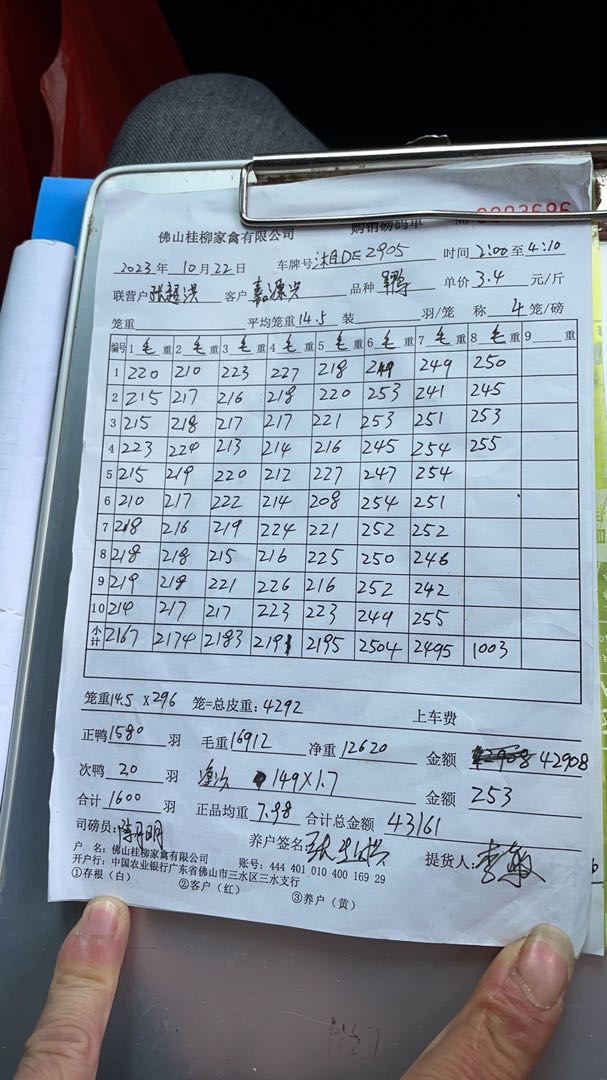 佛山桂柳家禽有限公司 购销磅码单 No
2023年10月22日 车牌号湘DE2905 时间2:00至4:10
联营户张超洪 客户嘉源兴 品种 单价3.4元/斤
笼重 平均笼重14.5 装 羽/笼 称4笼/磅
编号 1毛重 2毛重 3毛重 4毛重 5毛重 6毛重 7毛重 8毛重 9 重
1 220 210 223 227 218 249 250
2 215 217 216 218 220 253 241 245
3 215 218 217 217 221 253 251 253
4 223 224 213 214 216 245 254 255
5 215 219 220 212 227 247 254
6 210 217 222 214 208 254 251
7 218 216 219 224 221 252 252
8 218 218 215 216 225 250 246
9 219 218 221 226 216 252 242
10 214 217 217 223 223 249 255
小计 2167 2174 2183 2191 2195 2504 2495 1003
笼重14.5×296 笼=总皮重:4292 上车费
正鸭1580羽 毛重16912 净重12620 金额 42908
次鸭20羽 149×1.7 金额253
合计1600羽 正品均重7.98 合计总金额43161
司磅员: 养户签名 提货人:李敏
户 名:佛山桂柳家禽有限公司 账号:444 401 010 400 169 29
开户行:中国农业银行广东省佛山市三水区三水支行
①存根(白) ②客户(红) ③养户(黄)